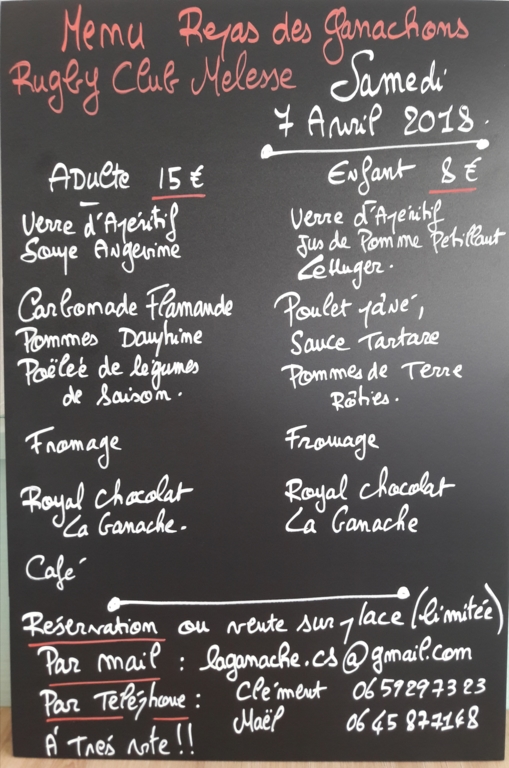 Menu Repas des Ganachons
Rugby Club Melesse
Samedi
7 Avril 2018.
Adulte 15 €
Verre d'Apéritif
Soupe Angevine
Carbonade Flamande
Pommes Dauphine
Poëleé de légumes
de Saison.
Fromage
Royal Chocolat
La Ganache.
Café
Enfant 8 €
Verre d'Apéritif
Jus de Pomme Petillant
Poulet pané,
Sauce Tartare
Pommes de Terre
Rôties.
Fromage
Royal Chocolat
La Ganache
Réservation ou vente sur place (limitée)
Par mail : laganache.cs@gmail.com
Par Téléphone : Clément 0659297323
Maël 0645877148
À Très vite !!